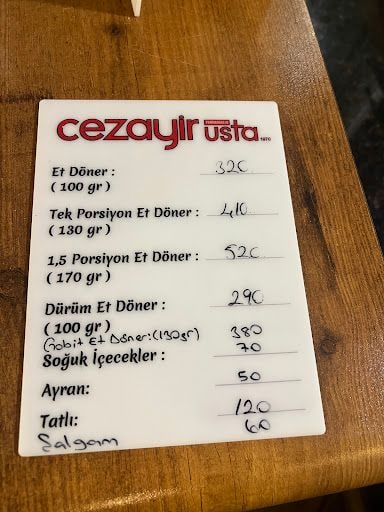 cezayir usta
Et Döner : 320
( 100 gr )
Tek Porsiyon Et Döner : 410
( 130 gr )
1,5 Porsiyon Et Döner : 520
( 170 gr )
Dürüm Et Döner : 290
( 100 gr )
Gobit Et Döner:(130gr) 380
Soğuk İçecekler : 70
Ayran: 50
Tatlı: 120
Şalgam 60